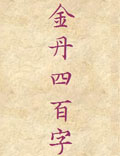 金丹四百字